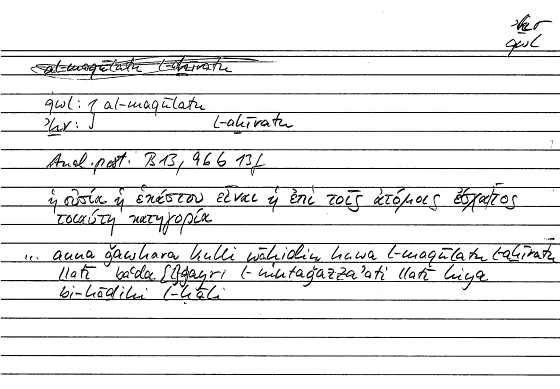 ʾḫr
qwl
al-maqūlatu l-aḫīratu
qwl: al-maqūlatu
ʾḫr: l-aḫīratu
Anal. post. B 13, 96 b 13f
ἡ οὐσία ἡ ἑκάστου εἶναι ἡ ἐπὶ τοῖς ἀτόμοις ἔσχατος
τοιαύτη κατηγορία
... anna ǧawhara kulli wāḥidin huwa l-maqūlatu l-aḫīratu
llatī baʿda ġayri l-mutaǧazzaʾati llatī hiya
bi-hāḏihi l-ḥāli